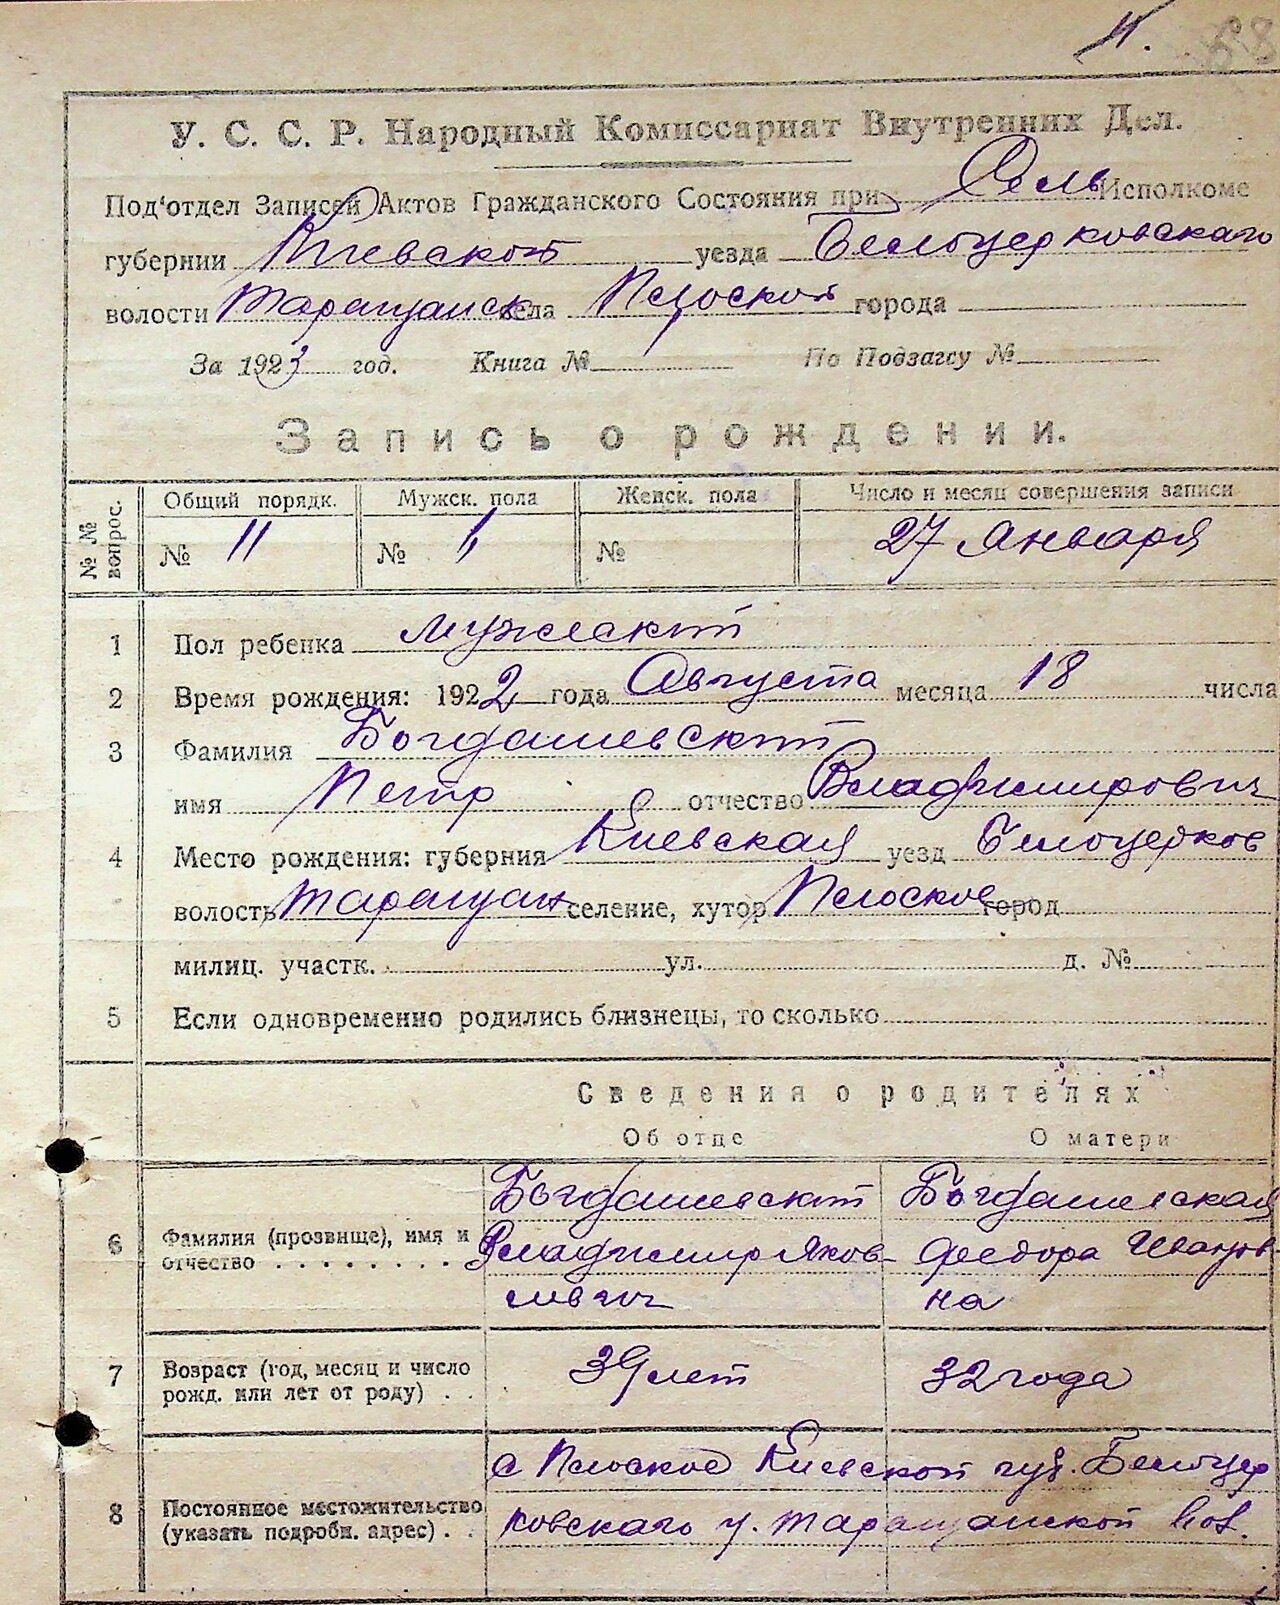 11.
У. С. С. Р. Народный Комиссариат Внутренних Дел.
Под'отдел Записей Актов Гражданского Состояния при Сель Исполкоме
губернии Киевской уезда Белоцерковского
волости Таращанск села Плоской города
За 1923 год. Книга № По Подзагсу №
Запись о рождении.
№ № вопрос. Общий порядк. Мужск. пола Женск. пола Число и месяц совершения записи
№ 11 № № 27 Января
1 Пол ребенка мужеский
2 Время рождения: 1922 года Августа месяца 18 числа
3 Фамилия Богдашевский
имя Петр отчество Владимирович
4 Место рождения: губерния Киевская уезд Белоцерков
волость Таращан селение, хутор Плоское город
милиц. участк. ул. д. №
5 Если одновременно родились близнецы, то сколько
Сведения о родителях
Об отце О матери
Богдашевский Богдашевская
6 Фамилия (прозвище), имя и отчество . . . . . . . . Владимир Яков- Федора Иванов-
левич на
7 Возраст (год, месяц и число рожд. или лет от роду) . . 39 лет 32 года
с Плоское Киевской губ. Белоцер
8 Постоянное местожительство (указать подробн. адрес) . . ковского у. Таращанской вол.